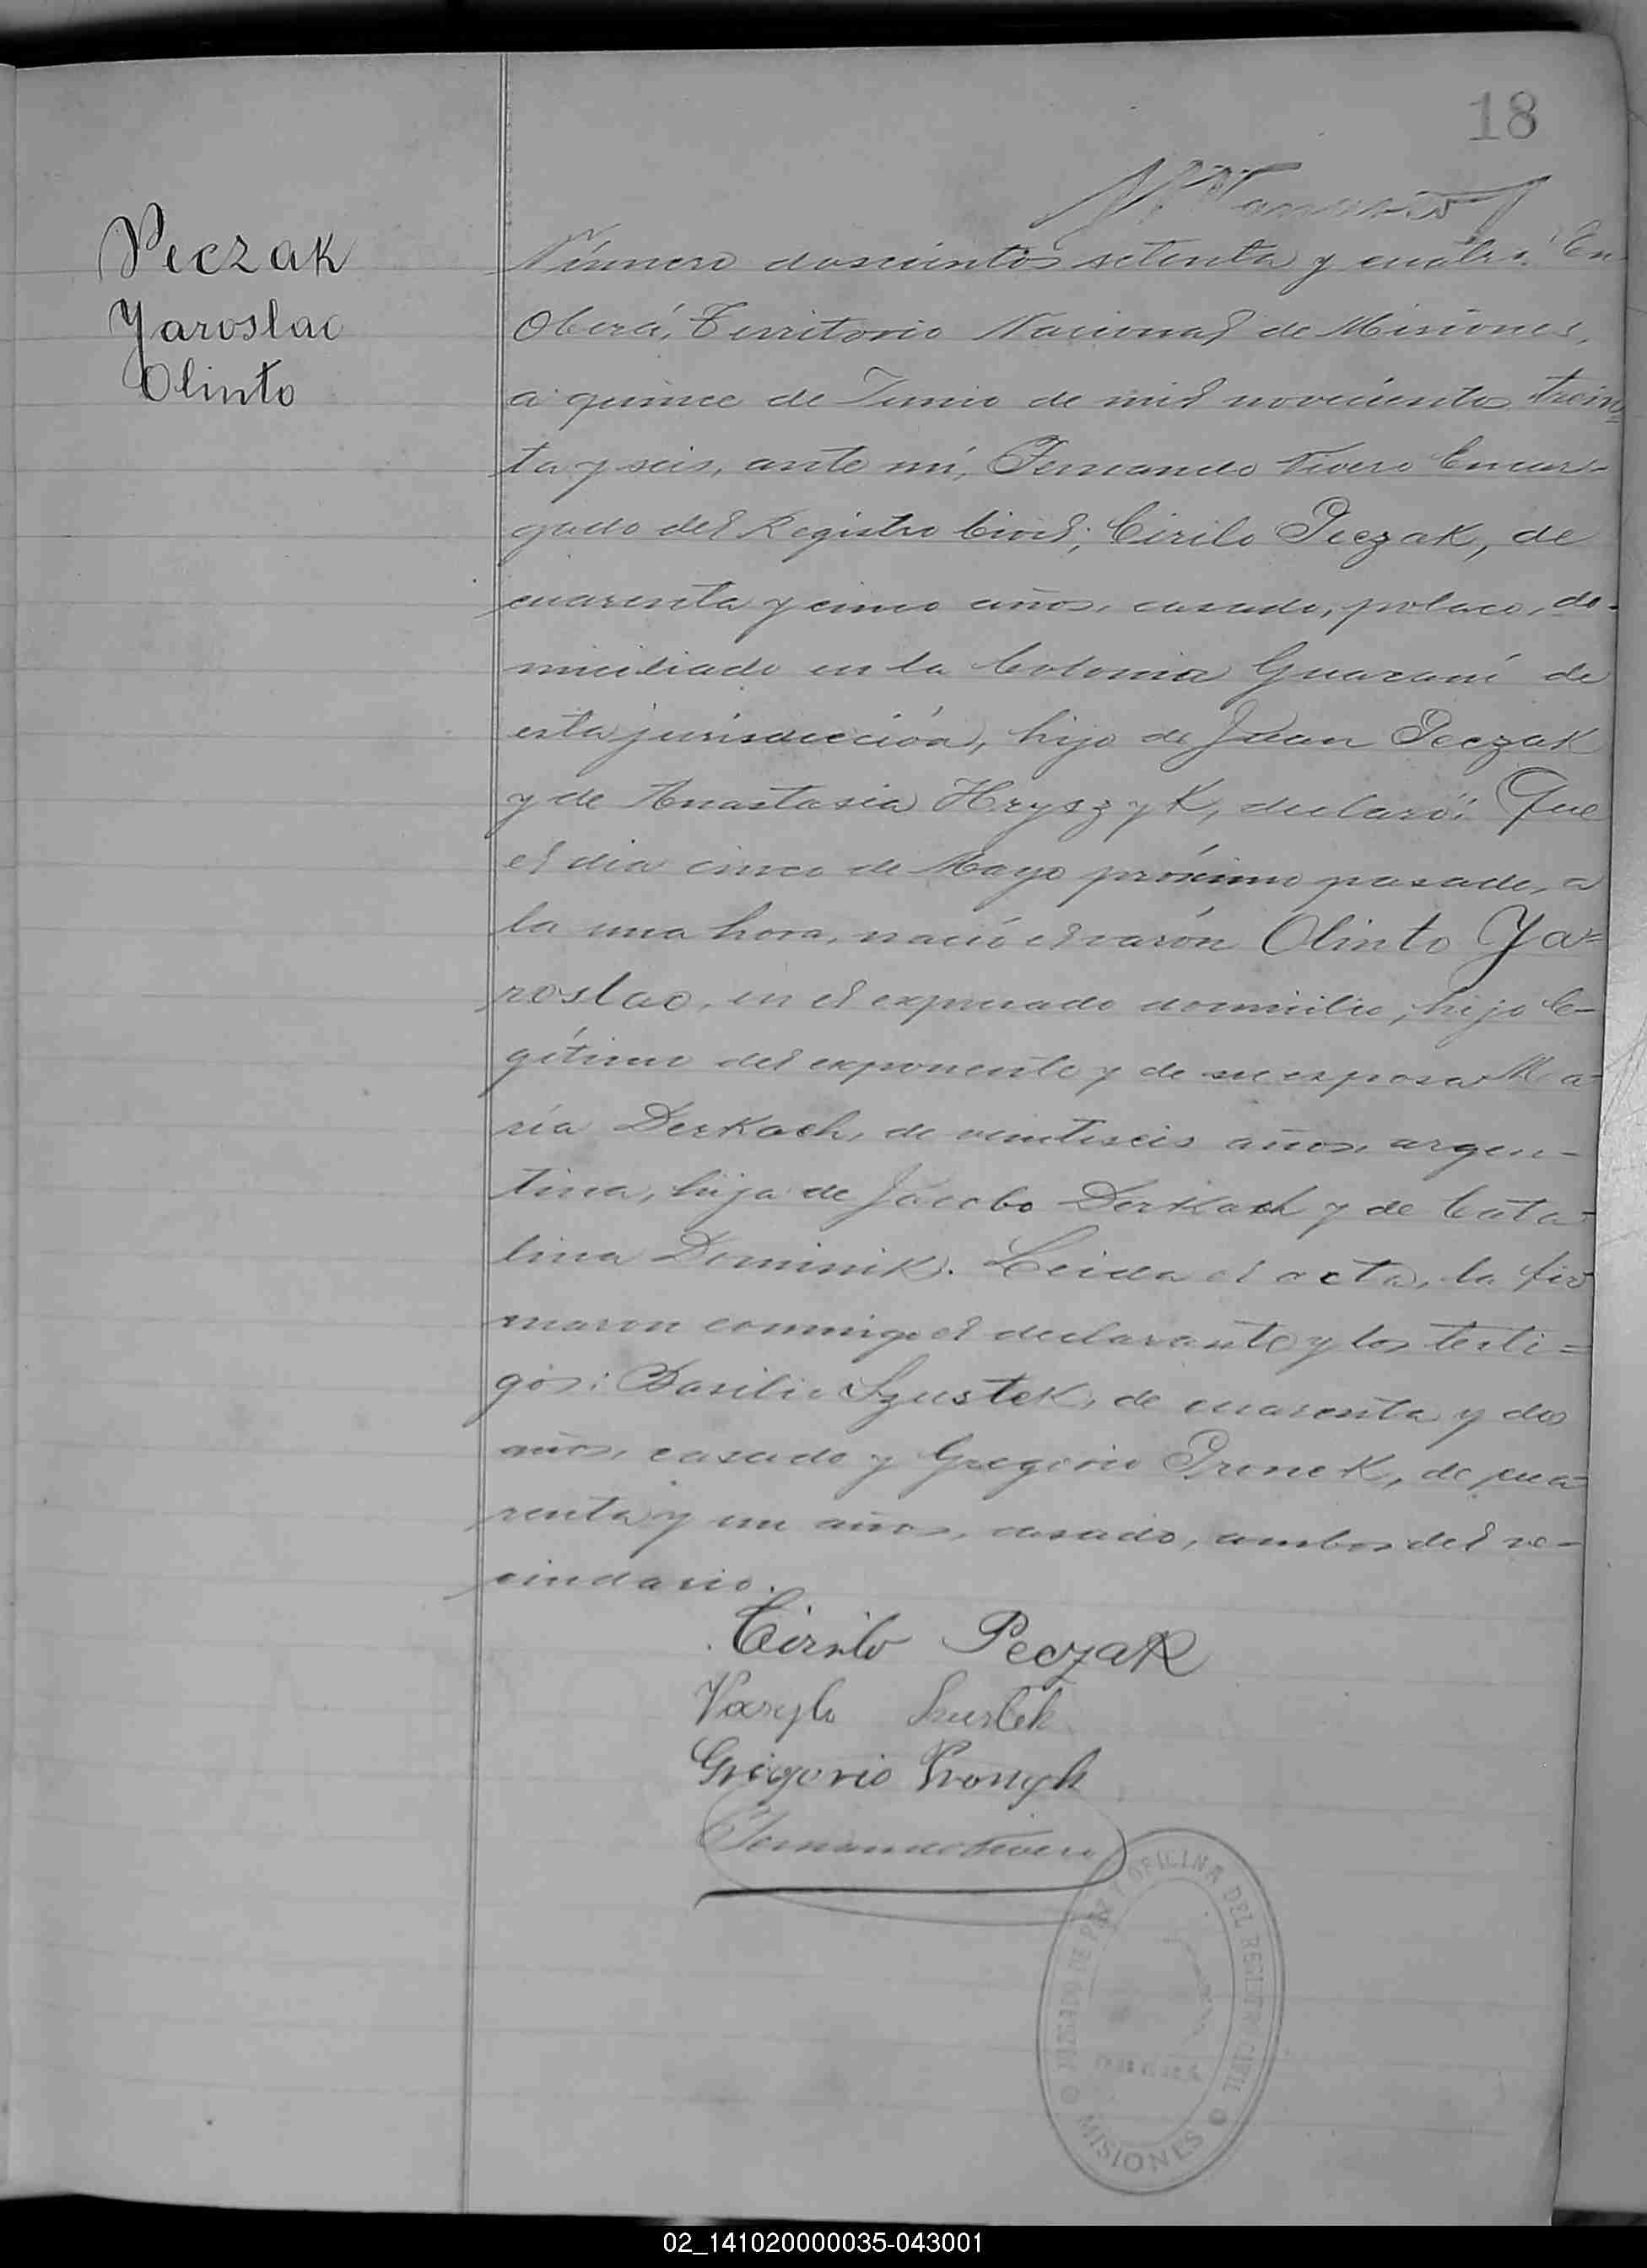 18
Peczak
Yaroslao
Olinto
Número doscientos setenta y cuatro. En
Oberá, Territorio Nacional de Misiones,
a quince de Junio de mil novecientos trein=
ta y seis, ante mí, Fernando Rivero Encar-
gado del Registro Civil; Cirilo Peczak, de
cuarenta y cinco años, casado, polaco, do-
miciliado en la Colonia Guaraní de
esta jurisdicción, hijo de Juan Peczak
y de Anastasia Hryszyk, declaró: Que
el dia cinco de Mayo próximo pasado, a
la una hora, nació el varón Olinto Ya=
roslao, en el expresado domicilio, hijo le-
gítimo del exponente y de su esposa Ma-
ría Derkach, de veintiseis años, argen-
tina, hija de Jacobo Derkach y de Cata-
lina Dominik. Leida el acta, la fir
maron conmigo el declarante y los testi=
gos: Basilio Szustek, de cuarenta y dos
años, casado y Gregorio Pronek, de cua-
renta y un años, casado, ambos del ve-
cindario.
Cirilo Peczak
Vasylo Szustek
Grigorio Pronyk
JUZGADO DE PAZ Y OFICINA DEL REGISTRO CIVIL
MISIONES
02_141020000035-043001